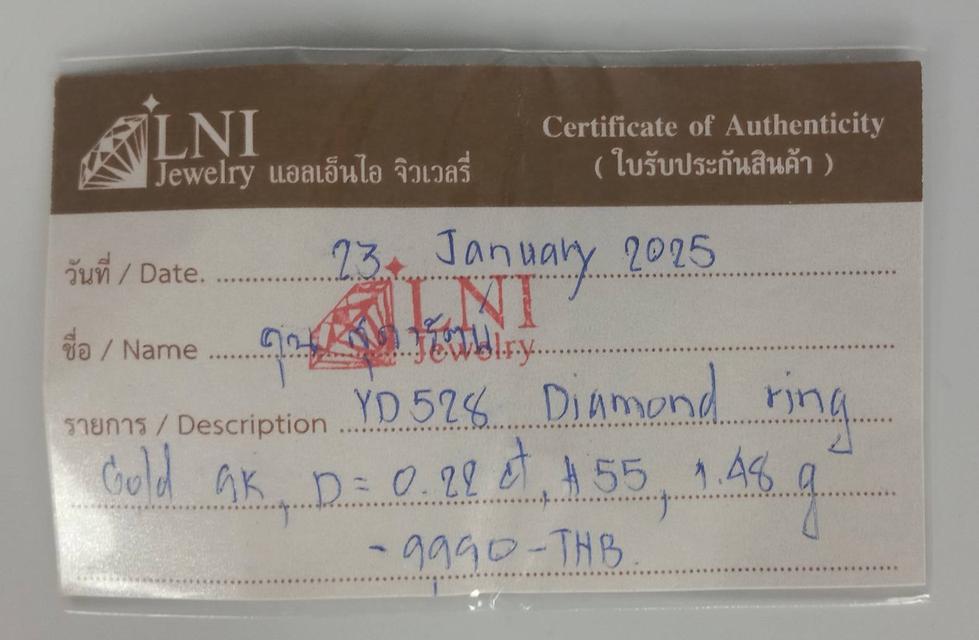 LNI
Jewelry แอลเอ็นไอ จิวเวลรี่
Certificate of Authenticity
( ใบรับประกันสินค้า )
วันที่ / Date. 23 January 2025
LNI
Jewelry
ชื่อ / Name คุณ สุดารัตน์
รายการ / Description YD528 Diamond ring
Gold 9K, D = 0.22 ct, #55, 1.48 g
- 9,990 - THB.